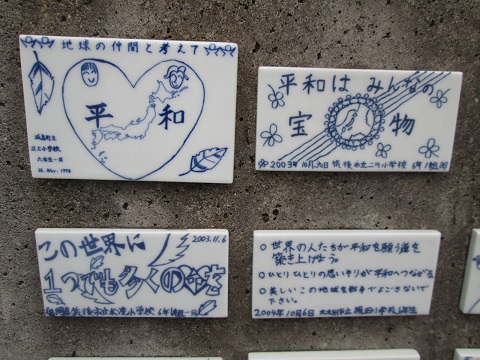 地球の仲間と考えて
平和
江上小学校
六年生一同
25. Nov. 1998
平和は みんなの
宝物
2003年10月九日 筑後市立二川小学校 6年1組
この世界に
2003.11.6
1つでも多くの命を
小学校
○世界の人たちが平和を願う道を
築き上げよう。
○ひとりひとりの思いやりが平和へつながる
○美しいこの地球を戦争でよごさないで
下さい。
2004年10月6日
小学校